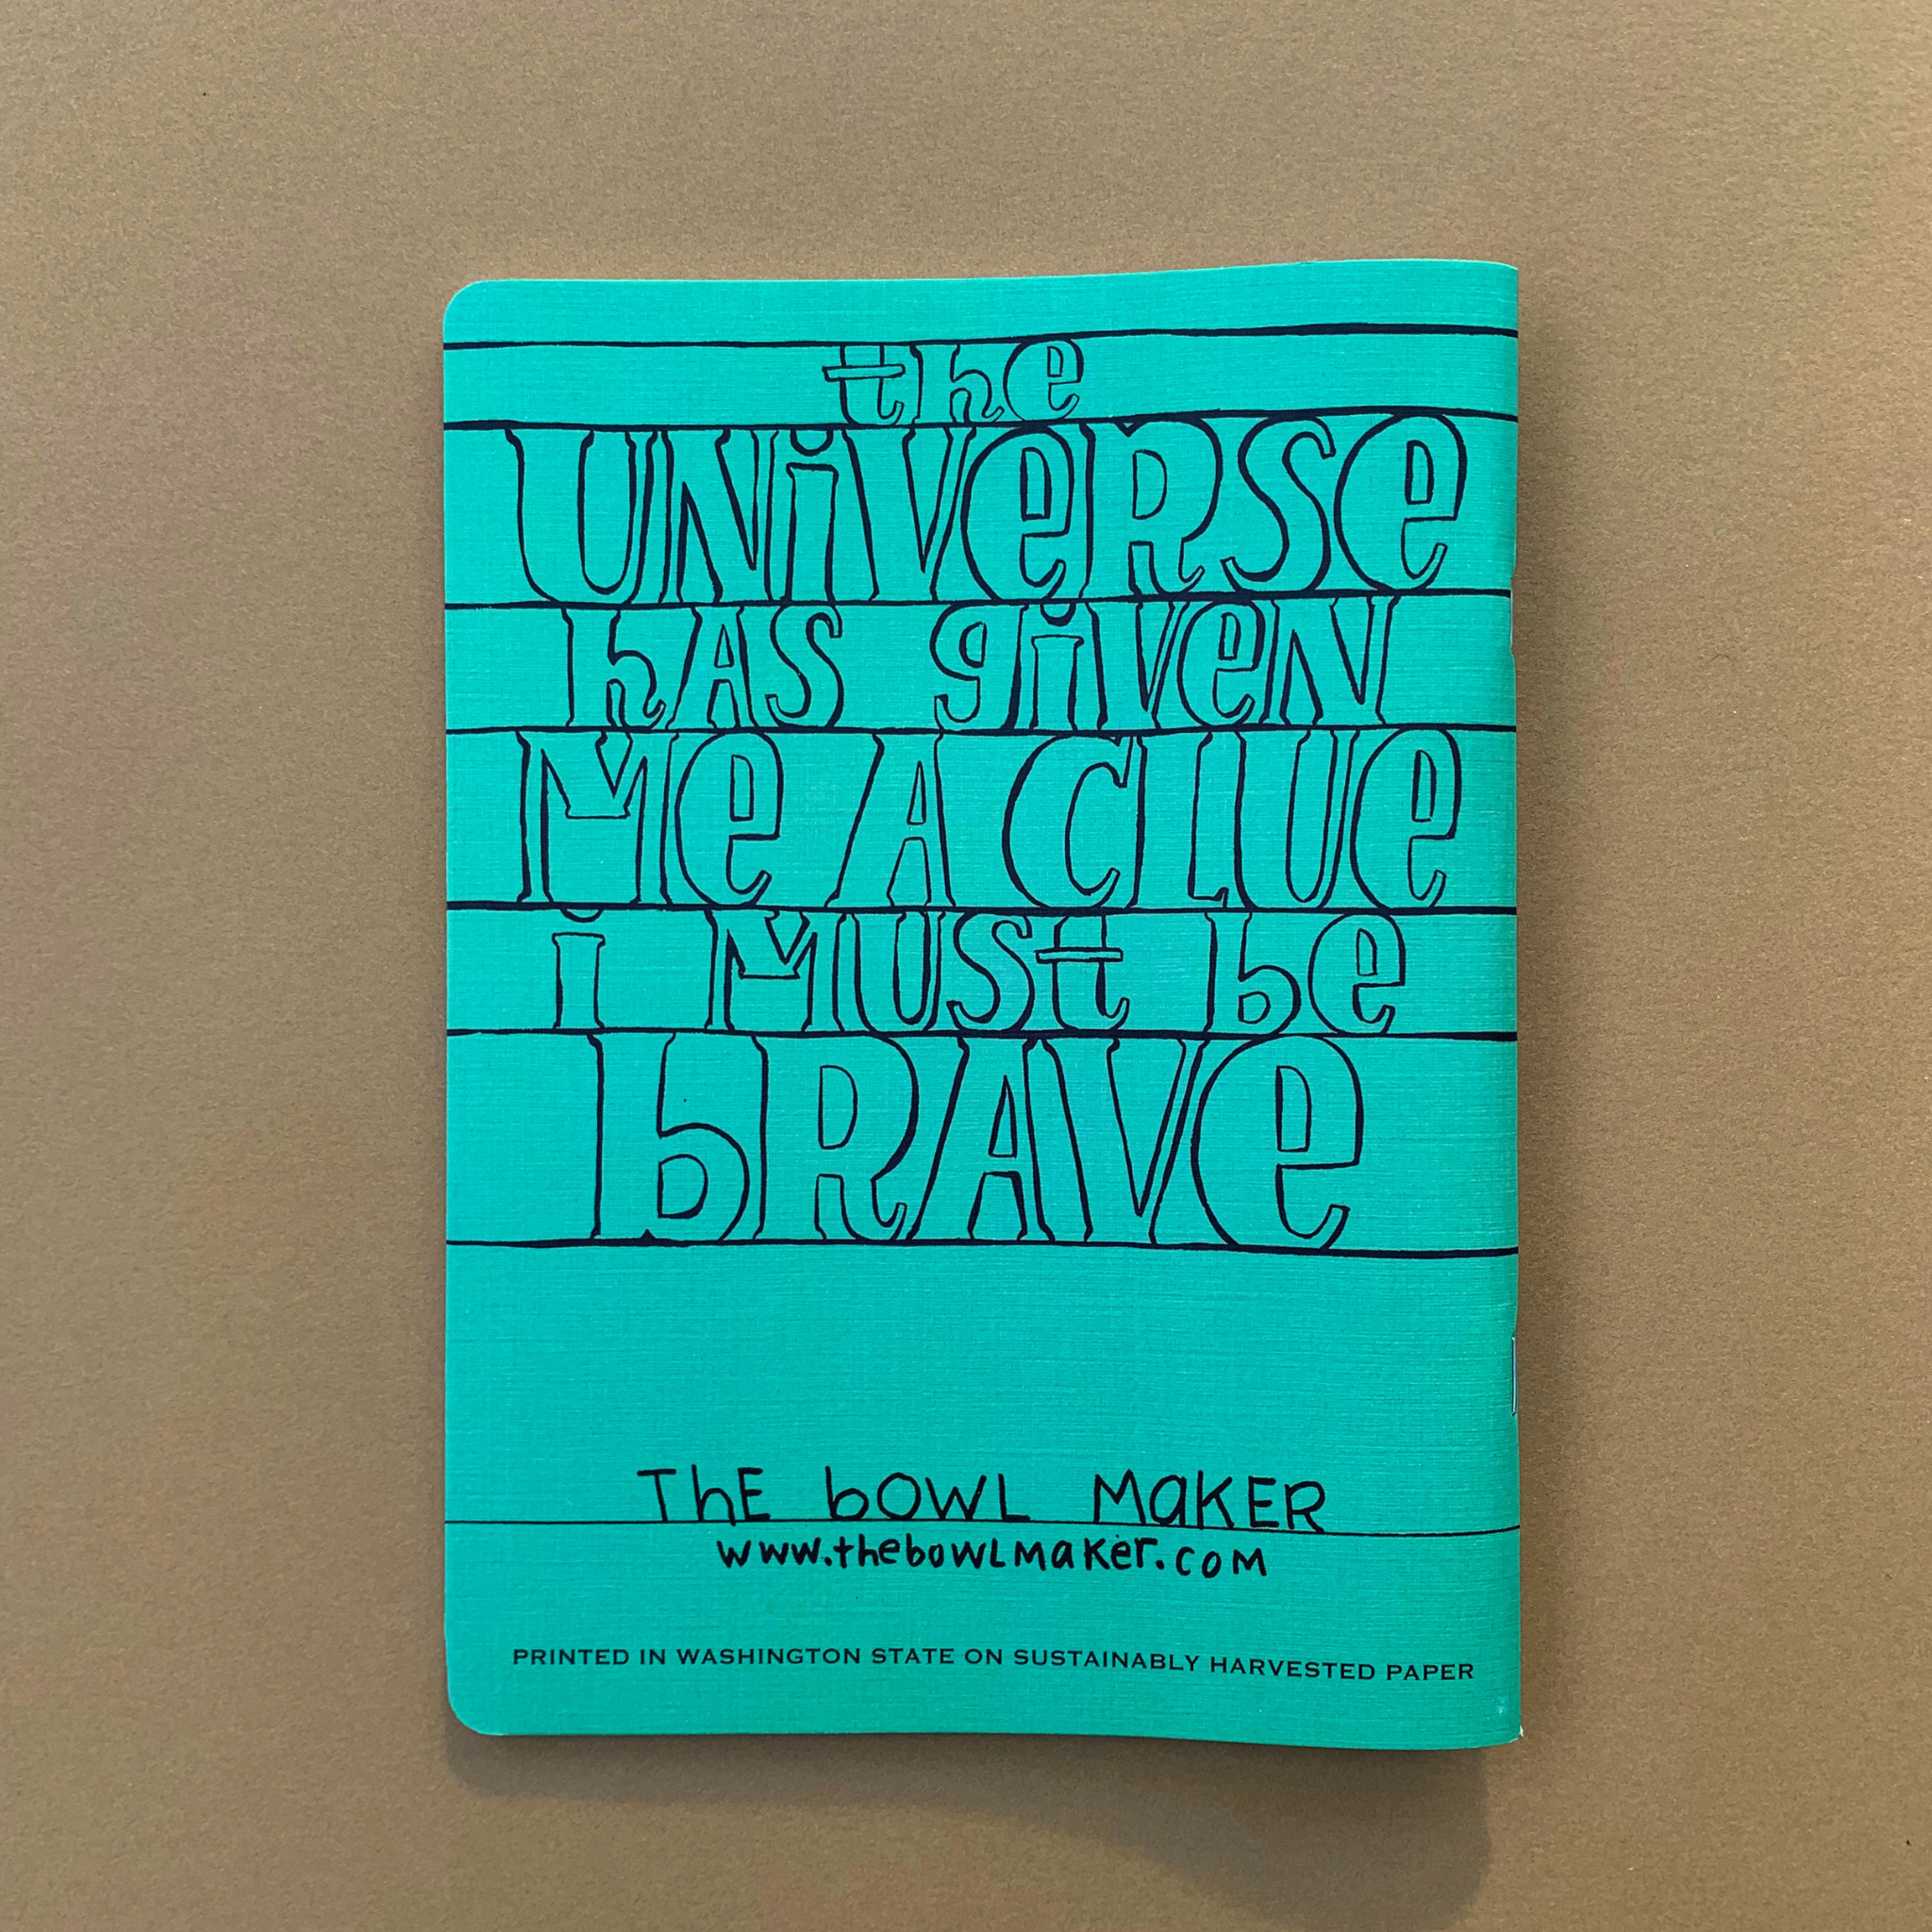 the
UNiVeRSe
hAS giVeN
Me A CLUe
i MUSt be
bRAVe
ThE bOWL MaKER
www.thebowLmaKer.coM
PRINTED IN WASHINGTON STATE ON SUSTAINABLY HARVESTED PAPER